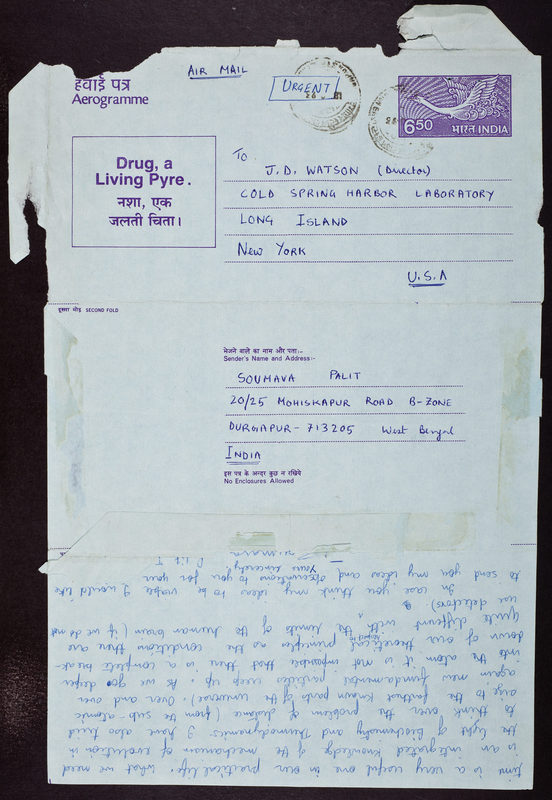 हवाई पत्र
Aerogramme
AIR MAIL
URGENT
6.50
भारत INDIA
Drug, a
Living Pyre.
नशा, एक
जलती चिता।
To
J.D. WATSON (Director)
COLD SPRING HARBOR LABORATORY
LONG ISLAND
New YORK
U.S.A
दूसरा मोड़ SECOND FOLD
भेजने वाले का नाम और पता:-
Sender's Name and Address:-
SOUMAVA PALIT
20/25 MOHISKAPUR ROAD B-ZONE
DURGAPUR- 713205 West Bengal
INDIA
इस पत्र के अन्दर कुछ न रखिये
No Enclosures Allowed
time is a very useful one in our practical life. What we need
is an integrated knowledge of the mechanism of evolution in
the light of Biochemistry and Thermodynamics. I have also tried
to think over the problem of distance (from the sub-atomic
size to the farthest known parts of the universe). Over and over
again new fundamental particles creep up. As we go deeper
into the atom it is not impossible that there is a complete break-
down of our theoretical principles as the conditions there are
quite different with respect to the limits of the human brain (if we do not
use detectors)
In case you think my ideas to be viable I would like
to send you my ideas and to you for your
Yours sincerely